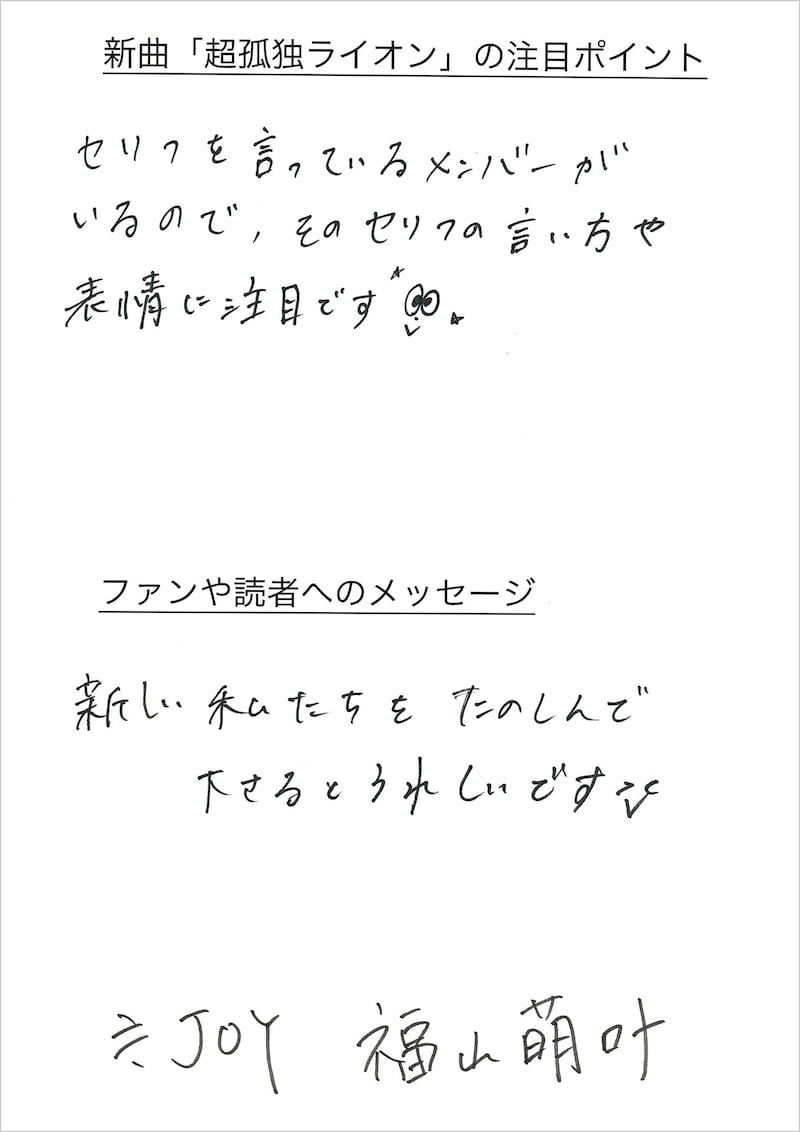 新曲「超孤独ライオン」の注目ポイント
セリフを言っているメンバーが
いるので、そのセリフの言い方や
表情に注目です
ファンや読者へのメッセージ
新しい私たちをたのしんで
下さるとうれしいです
≒JOY 福山萌叶